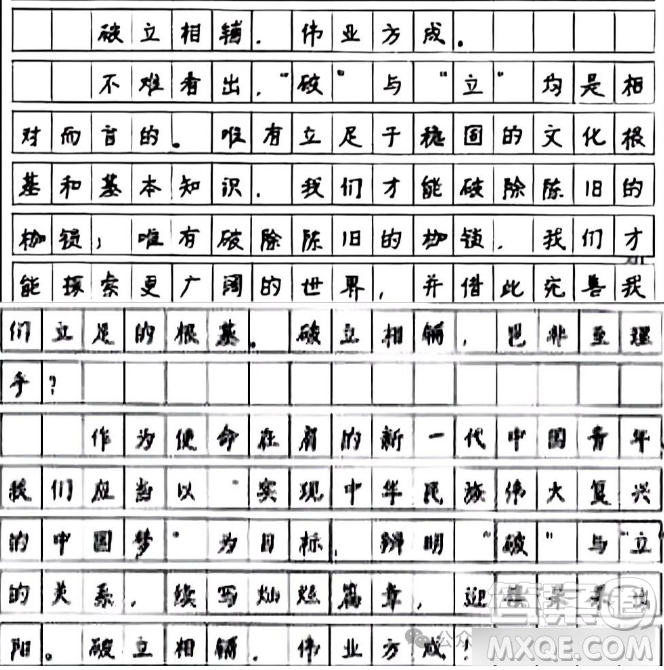 破立相辅，伟业方成。
不难看出，“破”与“立”均是相
对而言的。唯有立足于稳固的文化根
基和基本知识，我们才能破除陈旧的
枷锁；唯有破除陈旧的枷锁，我们才
能探索更广阔的世界，并借此完善我
们立足的根基。破立相辅，岂非至理
乎？
作为使命在肩的新一代中国青年
我们应当以“实现中华民族伟大复兴
的中国梦”为目标，辨明“破”与“立
的关系，续写灿烂篇章，迎接
阳。破立相辅，伟业方成！
MXQE.COM